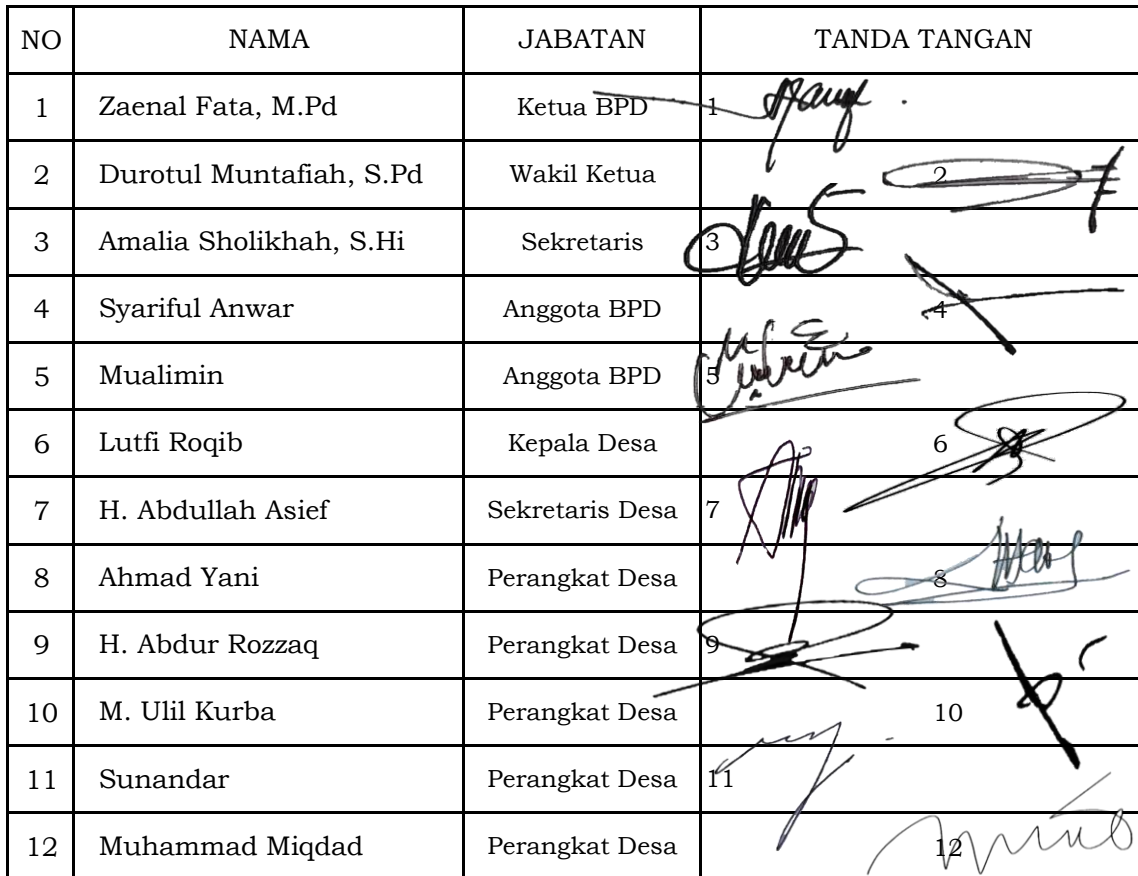 NO NAMA JABATAN TANDA TANGAN
1 Zaenal Fata, M.Pd Ketua BPD 1
2 Durotul Muntafiah, S.Pd Wakil Ketua 2
3 Amalia Sholikhah, S.Hi Sekretaris 3
4 Syariful Anwar Anggota BPD 4
5 Mualimin Anggota BPD 5
6 Lutfi Roqib Kepala Desa 6
7 H. Abdullah Asief Sekretaris Desa 7
8 Ahmad Yani Perangkat Desa 8
9 H. Abdur Rozzaq Perangkat Desa 9
10 M. Ulil Kurba Perangkat Desa 10
11 Sunandar Perangkat Desa 11
12 Muhammad Miqdad Perangkat Desa 12